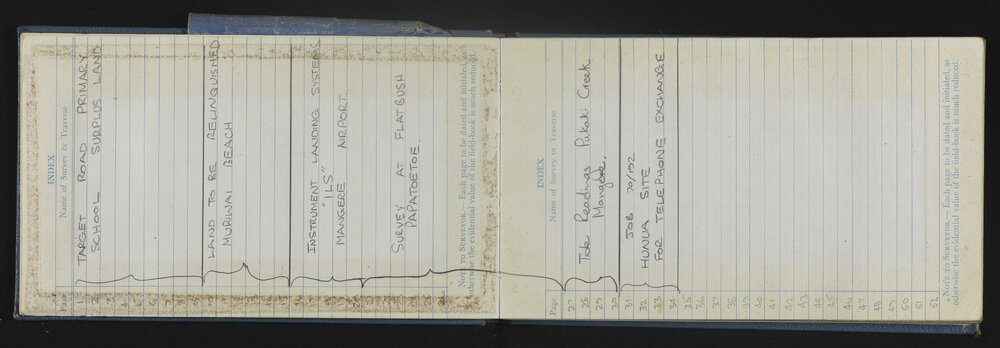 INDEX
Page
Name of Survey or Traverse
1 TARGET ROAD PRIMARY
2 SCHOOL SURPLUS LAND
3
4
5
6
7
8
9
10 LAND TO BE RELINQUISHED
11 MURIWAI BEACH
12
13
14
15
16 INSTRUMENT LANDING SYSTEMS
17 "ILS"
18 MANGERE AIRPORT.
19
20
21
22 SURVEY AT FLATBUSH
23 PAPATOETOE
24
25
26
NOTE TO SURVEYOR.—Each page to be dated and initialed, as
otherwise the evidential value of the field-book is much reduced.
INDEX
Page
Name of Survey or Traverse
27
28 Tide Readings Pukaki Creek
29 Mangere.
30
31 JOB 70/102
32 HUNUA SITE
33 FOR TELEPHONE EXCHANGE
34
35
36
37
38
39
40
41
42
43
44
45
46
47
48
49
50
51
52
NOTE TO SURVEYOR.—Each page to be dated and initialed, as
otherwise the evidential value of the field-book is much reduced.